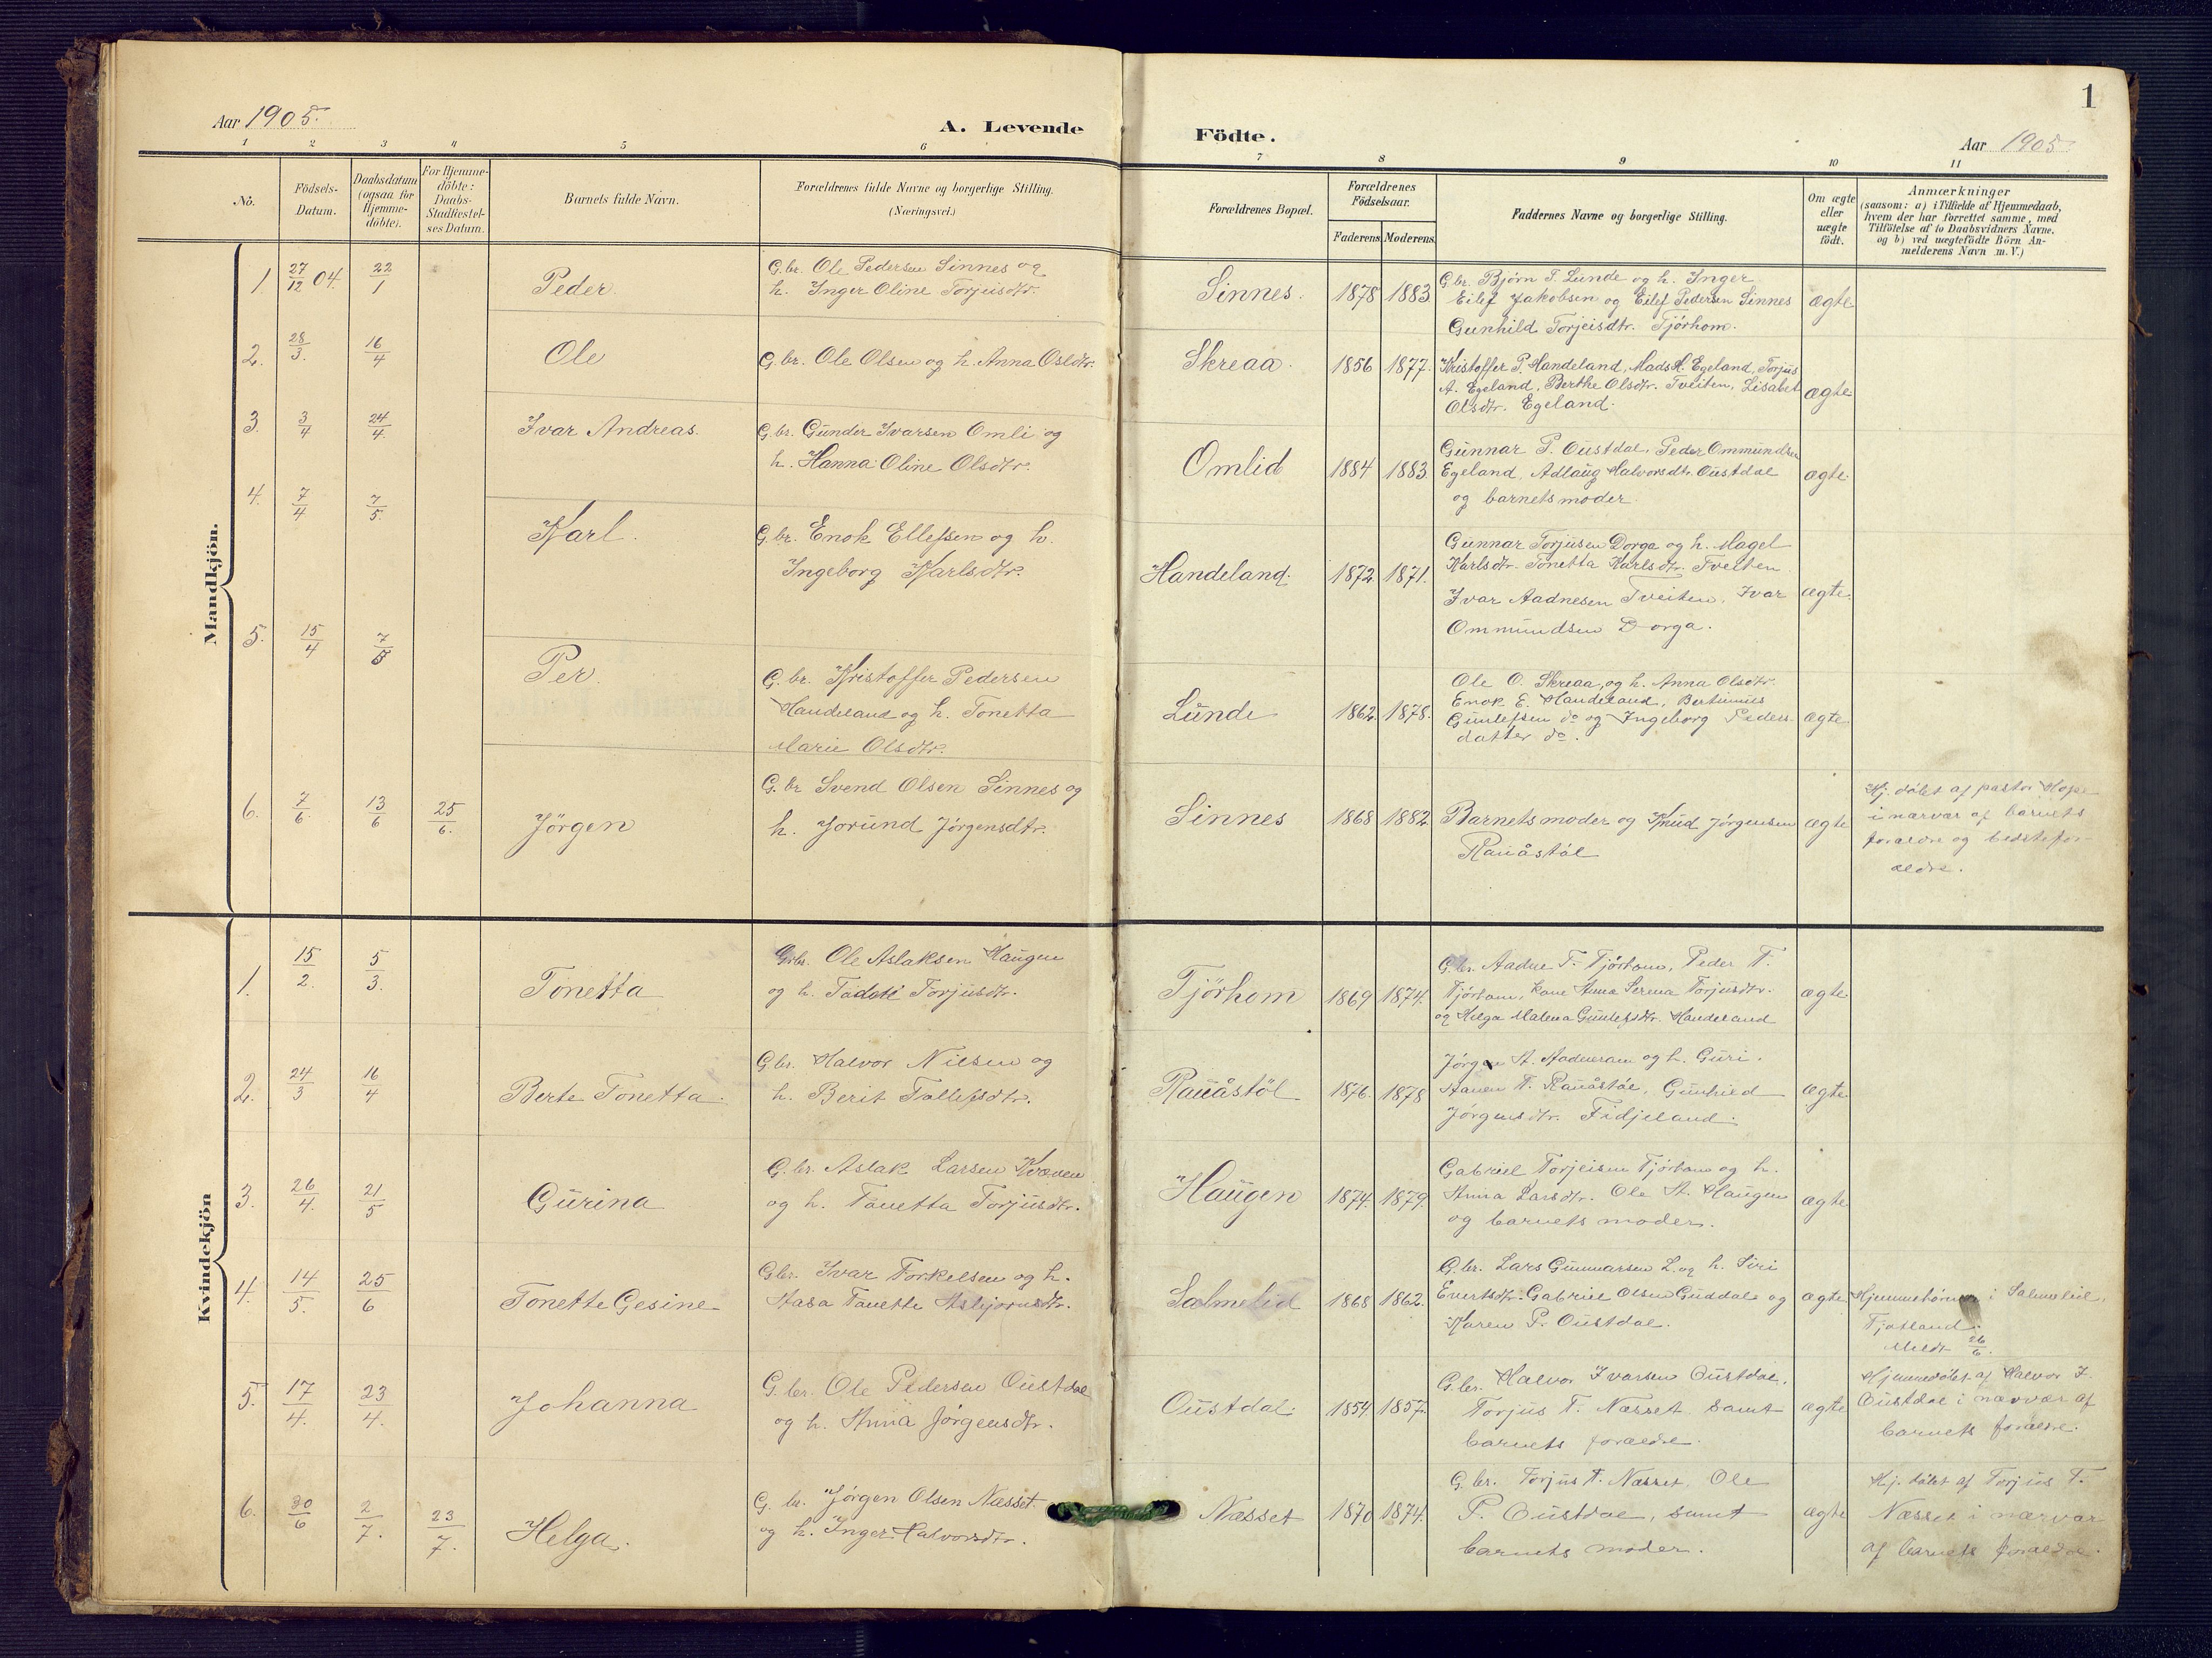 1
Aar 1905.
A. Levende Födte.
Aar 1905
1 2 3 4 5 6 7 8 9 10 11
No.
Födsels-Datum.
Daabsdatum (ogsaa för Hjemme-döbte).
For Hjemme-döbte: Daabs-Stadfæstel-ses Datum.
Barnets fulde Navn.
Forældrenes fulde Navne og borgerlige Stilling.
(Næringsvei.)
Forældrenes Bopæl.
Forældrenes Födselsaar.
Faderens Moderens.
Faddernes Navne og borgerlige Stilling.
Om ægte eller uægte födt.
Anmærkninger
(saasom: a) i Tilfælde af Hjemmedaab,
hvem der har forrettet samme, med
Tilföielse af to Daabsvidners Navne.
og b) ved uægtefödte Börn An-
melderens Navn m. V.)
Mandkjön.
1 27/12 04. 22/1 Peder.
G.br. Ole Pedersen Sinnes og
h. Inger Oline Torjusdtr.
Sinnes. 1878 1883
G.br. Bjørn T. Lunde og h. Inger
Eilef Jakobsen og Eilef Pedersen Sinnes
Gunhild Torjeisdtr. Tjørhom.
ægte
2. 28/3. 16/4 Ole
G.br. Ole Olsen og h. Anna Olsdtr.
Skreaa. 1856 1877.
Kristoffer P. Handeland, Mads H. Egeland, Torjus
A. Egeland, Berthe Olsdtr. Tveiten, Lisabet
Olsdtr. Egeland.
ægte
3. 3/4 24/4. Ivar Andreas.
G.br. Gunder Ivarsen Omli og
h. Hanna Oline Olsdtr.
Omlid 1884 1883.
Gunnar P. Oustdal, Peder Ommundsen
Egeland, Adlaug Halvorsdtr. Oustdal
og barnets moder.
ægte.
4. 7/4 7/5. Karl.
G.br. Enok Ellefsen og h.
Ingeborg Karlsdtr.
Handeland. 1872 1871.
Gunnar Torjusen Dorga og h. Magel
Karlsdtr. Tonetta Karlsdtr. Tveiten
Ivar Aadnesen Tveiten, Ivar
Ommundsen Dorga.
ægte.
5. 15/4 7/5 Per.
G.br. Kristoffer Pedersen
Handeland og h. Tonetta
Marie Olsdtr.
Lunde 1862. 1878.
Ole O. Skreaa, og h. Anna Olsdtr.
Enok E. Handeland, Bertinius
Gunlefsen do og Ingeborg Peders
datter do.
ægte
6. 7/6. 13/6 25/6. Jörgen
G.br Svend Olsen Sinnes og
h. Jorund Jörgensdtr.
Sinnes 1868 1882
Barnets moder og Knud Jörgensen
Rauåstöl
ægte
Hj. döbt af pastor Hope
i nærvær af barnets
forældre og bedstefor-
ældre.
Kvindekjön
1. 15/2. 5/3. Tonetta
G.br. Ole Aslaksen Haugen
og h. Torjusdtr.
Tjörhom 1869 1874.
G.br. Aadne T. Tjörhom, Peder T.
Tjörhom, kone Anna Serena Torjusdtr.
og Helga Malena Gunlefsdtr. Handeland
ægte.
2. 24/3 16/4 Berte Tonetta.
G.br. Halvor Nilsen og
h. Berit Tollefsdtr.
Rauåstöl 1876. 1878
Jörgen A. Aadneram og h. Guri.
T. Rauåstöl, Gunhild
Jörgensdtr. Fidjeland.
ægte.
3. 26/4. 21/5 Gurina
G.br. Aslak Larsen Kvæven
og h. Tonetta Torjusdtr.
Haugen 1874. 1879.
Gabriel Torjeisen Tjörhom og h.
Anna Larsdtr. Ole A. Haugen
og barnets moder.
ægte
4. 14/5. 25/6 Tonette Gesine
G.br. Ivar Torkelsen og h.
Aasa Tonette Asbjornsdtr.
Salmelid 1868 1862.
G.br. Lars Gunnarsen L. og h. Siri
Evertsdtr. Gabriel Olsen Guddal og
Karen P. Oustdal.
ægte
i Salmelid,
Tjotland.
Meldt 26/6.
5. 17/4. 23/4. Johanna
G.br. Ole Pedersen Oustdal
og h. Anna Jørgensdtr.
Oustdal. 1854 1857.
G.br. Halvor Ivarsen Oustdal,
Torjus T. Næsset samt
barnets forældre.
ægte
Hjemmedöbt af Halvor I.
Oustdal i nærvær af
barnets forældre.
6. 30/6 2/7. 23/7. Helga.
G. br. Jörgen Olsen Næsset.
og h. Inger Halvorsdtr.
Næsset 1870 1874.
G.br. Torjus T. Næsset, Ole
P. Oustdal, samt
barnets moder.
ægte
Hj. döbt af Torjus T.
Næsset i nærvær
af barnets forældre.